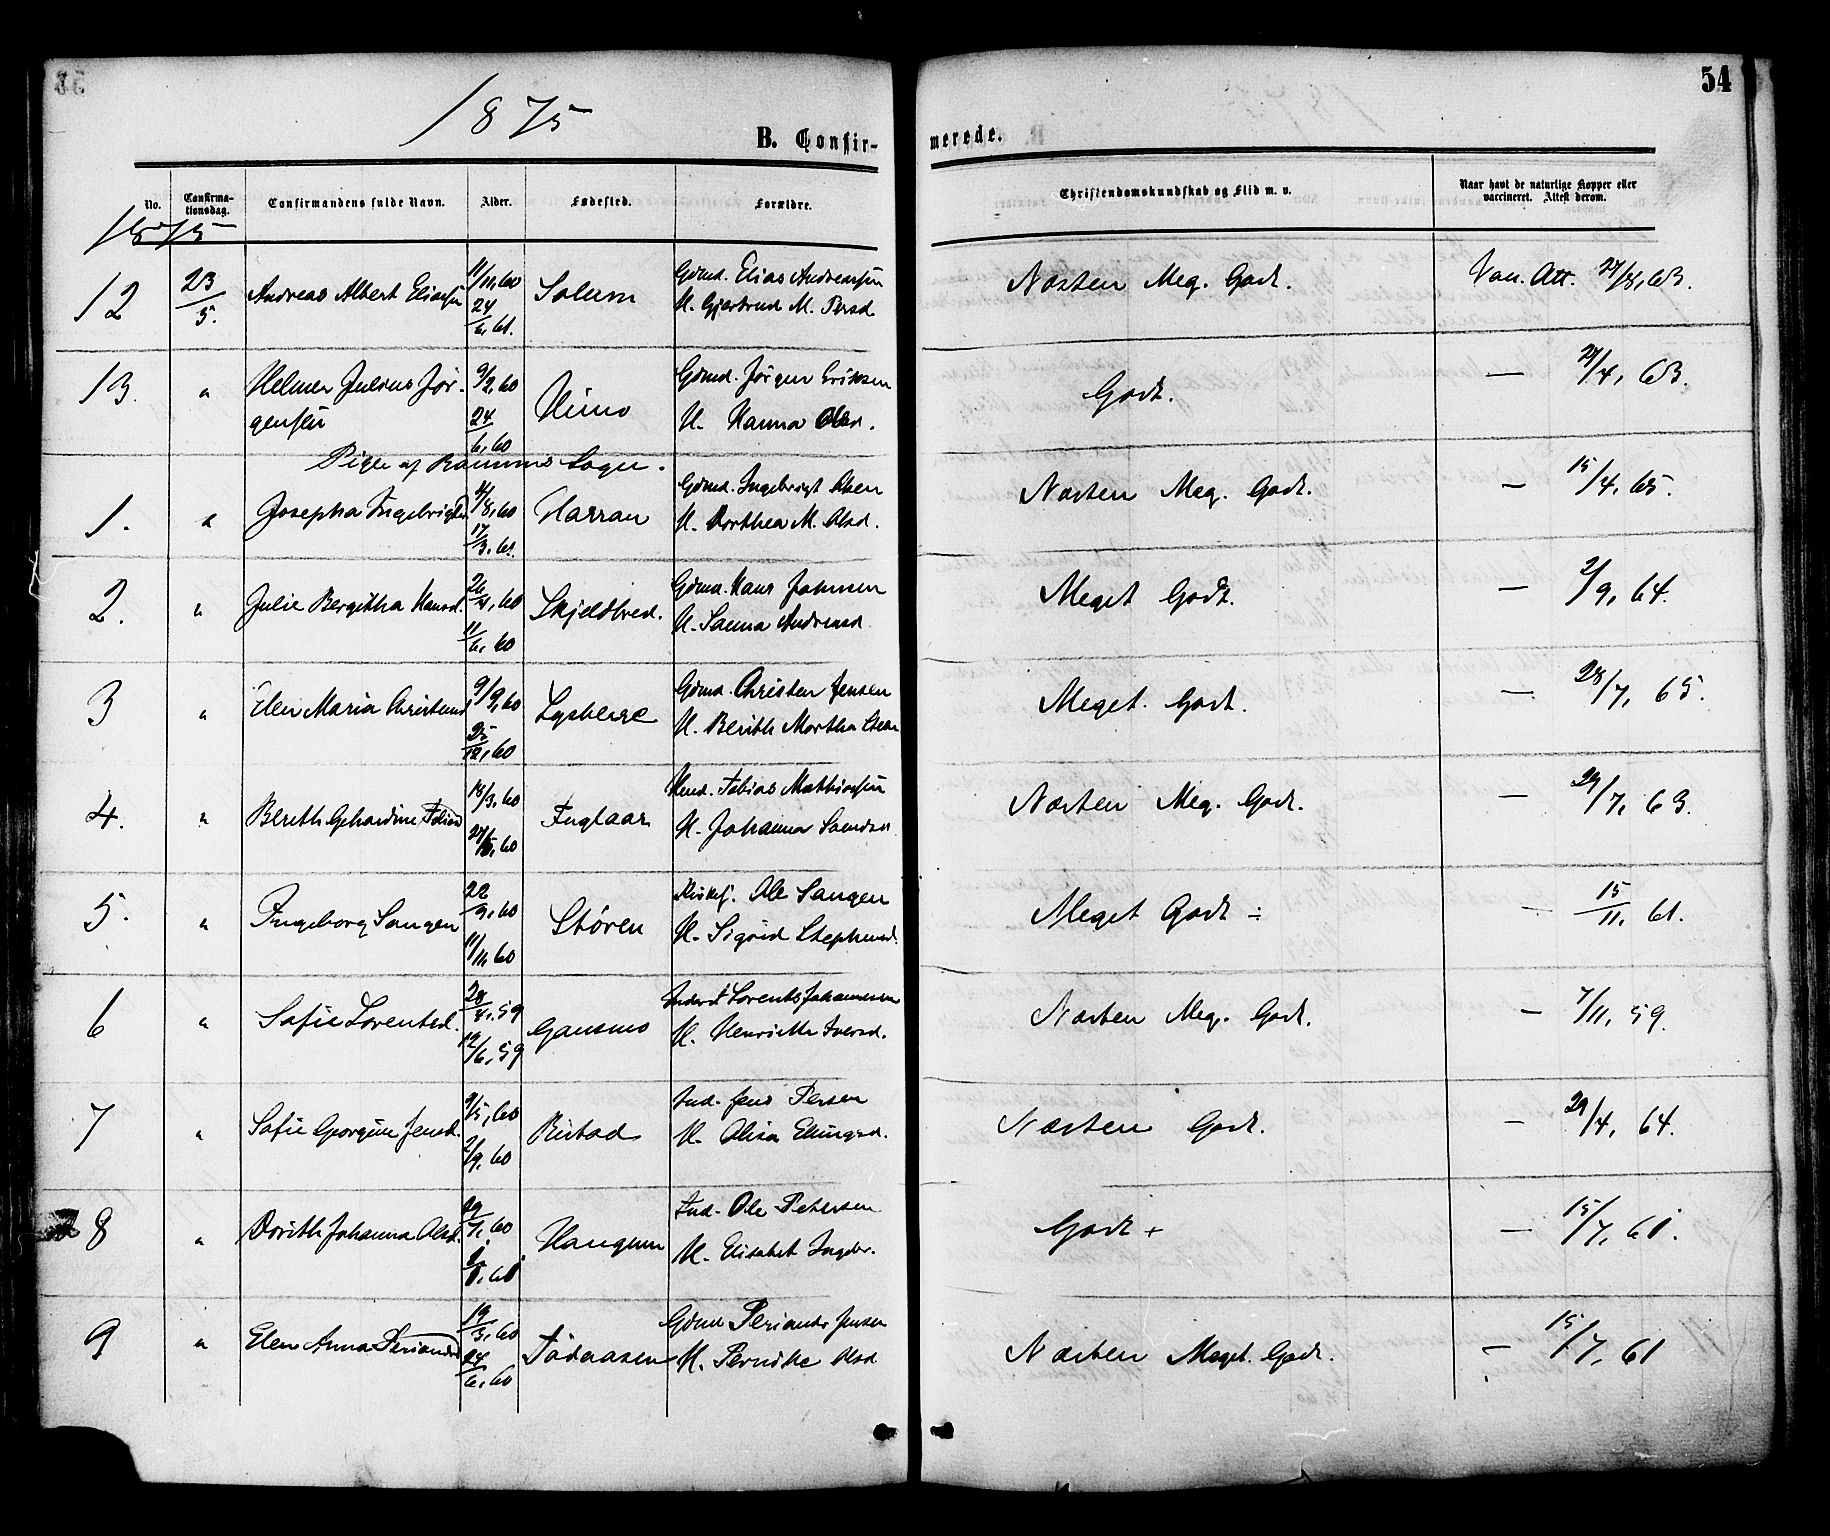 54
1875
B. Confirmerede.
No. Confirmationsdag. Confirmandens fulde Navn. Alder. Fødested. Forældre. Christendomskundskab og Flid m. v. Naar havt de naturlige Kopper eller vaccineret. Attest derom.
1875
12 23/5. Andreas Albert Eliassen 11/11,60 24/6,61. Solum Gdmd. Elias Andreassen H. Gjertrud M. Persd. Næsten Meg. Godt. Vac. Att. 27/8,63.
13. " Helmer Julius Jørgensen 9/2,60 24/6,60 Himo Gdmd. Jørgen Eriksen H. Hanna Olsd. Godt. — 27/4,63.
Pige af Ranums Sogn.
1. " Josepha Ingebrigtsd 4/8,60 17/3,61. Harran Gdmd. Ingebrigt Olsen H. Dorthea M. Olsd. Næsten Meg. Godt. — 15/4,65.
2. " Julie Bergitha Hansd. 26/4,60 11/6,60 Skjeldbred. Gdmd. Hans Johnsen H. Sanna Andreasd. Meget Godt. — 2/9,64.
3 " Elen Maria Christensd. 9/9,60 25/12,60 Lysberg Gdmd. Christen Jensen H. Berith Martha Meget Godt. — 28/7,65.
4. " Bereth Gehardine 18/3,60 27/5,60 Fuglaar Tobias Mathiassen H. Johanna Næsten Meg. Godt. — 29/7,63.
5. " Ingeborg Sangen 22/9,60 11/11,60 Støren Kirkes. Ole Sangen H. Sigrid Stephensd. Meget Godt ÷ — 15/11,61.
6 " Sofie Lorentsd. 28/4,59 12/6,59 Gansmo Lorents Johannessen H. Henriette Iversd. Næsten Meg. Godt. — 7/11,59.
7 " Sofie Georgine Jensd. 9/5,60 2/9,60 Rustad Ind. Jens Persen H. Olisa Ellingsd. Næsten Godt. — 29/4,64.
8 " Dorith Johanna Olsd. 29/7,60 Haugum Ind. Ole Petersen H. Elisabet Ingebr. Godt + — 15/7,61.
9 " Elen Anna Periandsd 19/3,60 24/6,60 Tødaasen Gdmd Periander Jensen H. Pernike Olsd Næsten Meget. Godt. — 15/7,61